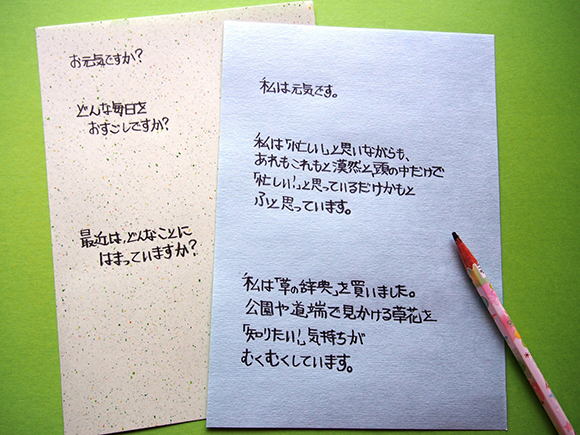 お元気ですか？
どんな毎日を
おすごしですか？
最近は、どんなことに
はまっていますか？
私は元気です。
私は「忙しい！」と思いながらも、
あれもこれもと漠然と、頭の中だけで
「忙しい！」と思っているだけかもと
ふと思っています。
私は「草の辞典」を買いました。
公園や道端で見かける草花を
「知りたい！」気持ちが
むくむくしています。